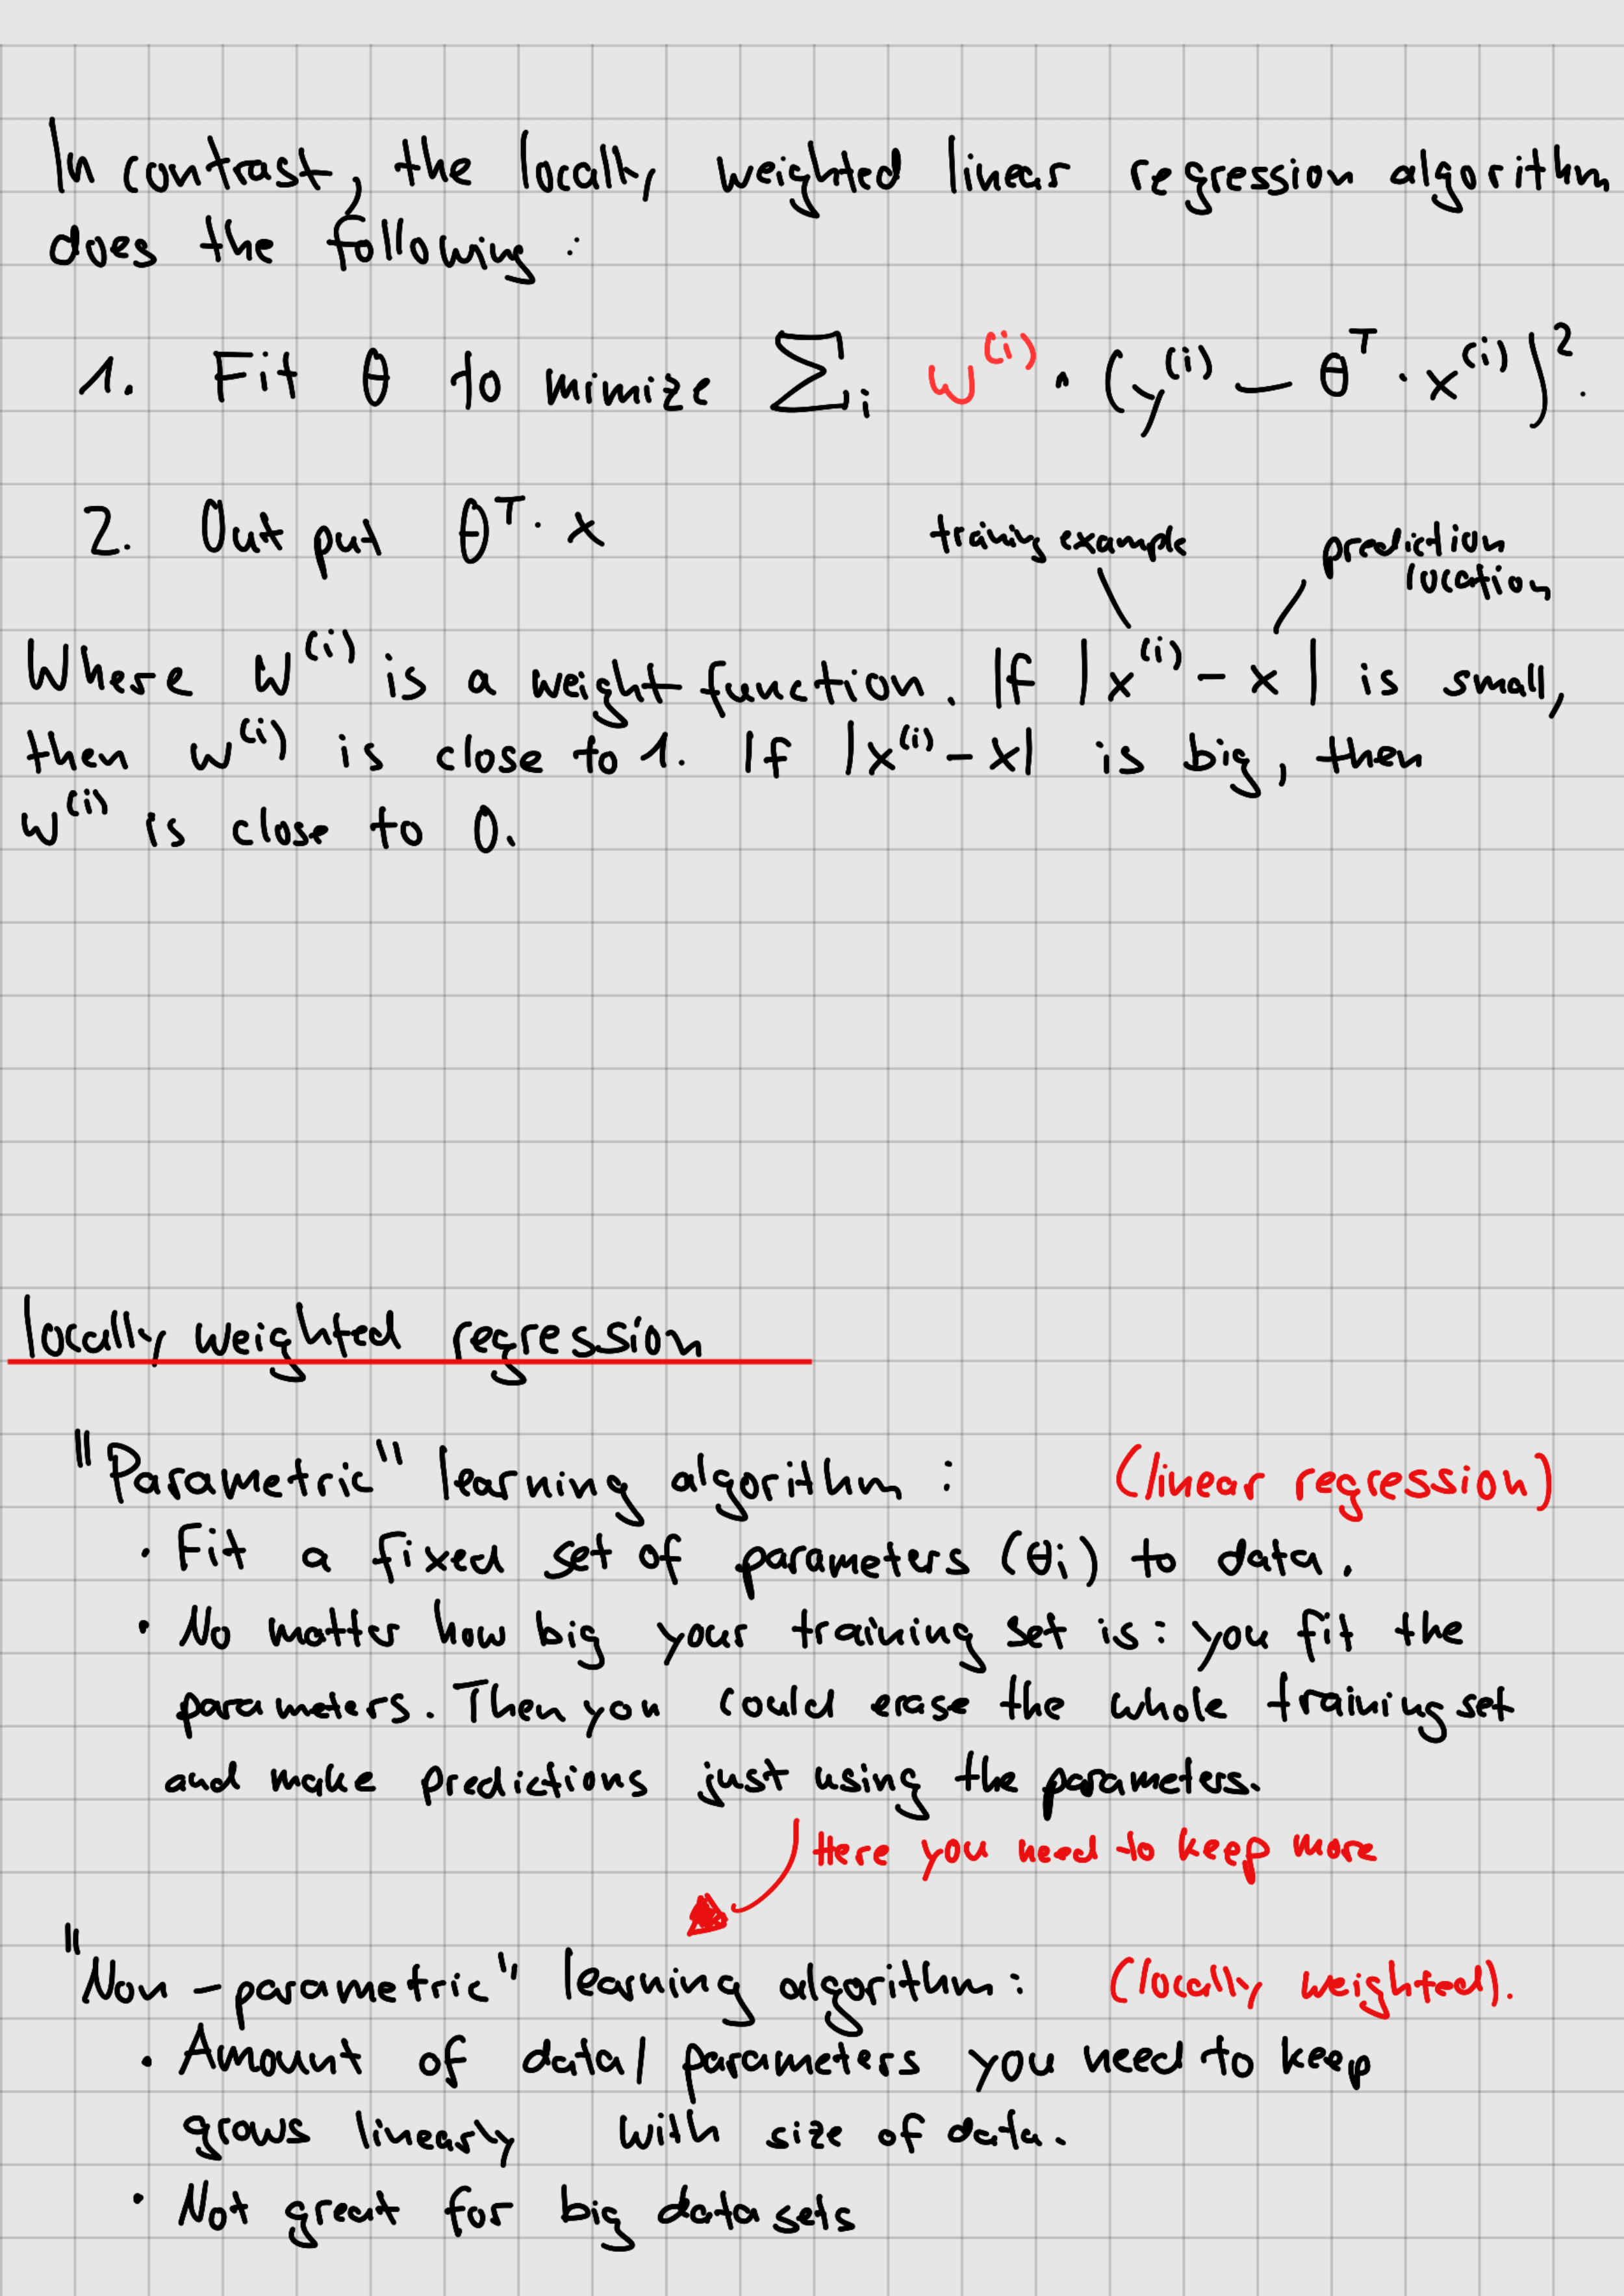 In contrast, the locally weighted linear regression algorithm
does the following:
1. Fit θ to mimize ∑ᵢ w⁽ⁱ⁾ · (y⁽ⁱ⁾ − θᵀ · x⁽ⁱ⁾)².
2. Output θᵀ · x
training example
prediction
location
Where w⁽ⁱ⁾ is a weight function. If |x⁽ⁱ⁾ − x| is small,
then w⁽ⁱ⁾ is close to 1. If |x⁽ⁱ⁾ − x| is big, then
w⁽ⁱ⁾ is close to 0.
locally weighted regression
"Parametric" learning algorithm: (linear regression)
· Fit a fixed set of parameters (θᵢ) to data.
· No matter how big your training set is: you fit the
parameters. Then you could erase the whole training set
and make predictions just using the parameters.
Here you need to keep more
"Non-parametric" learning algorithm: (locally weighted).
· Amount of data/ parameters you need to keep
grows linearly with size of data.
· Not great for big data sets